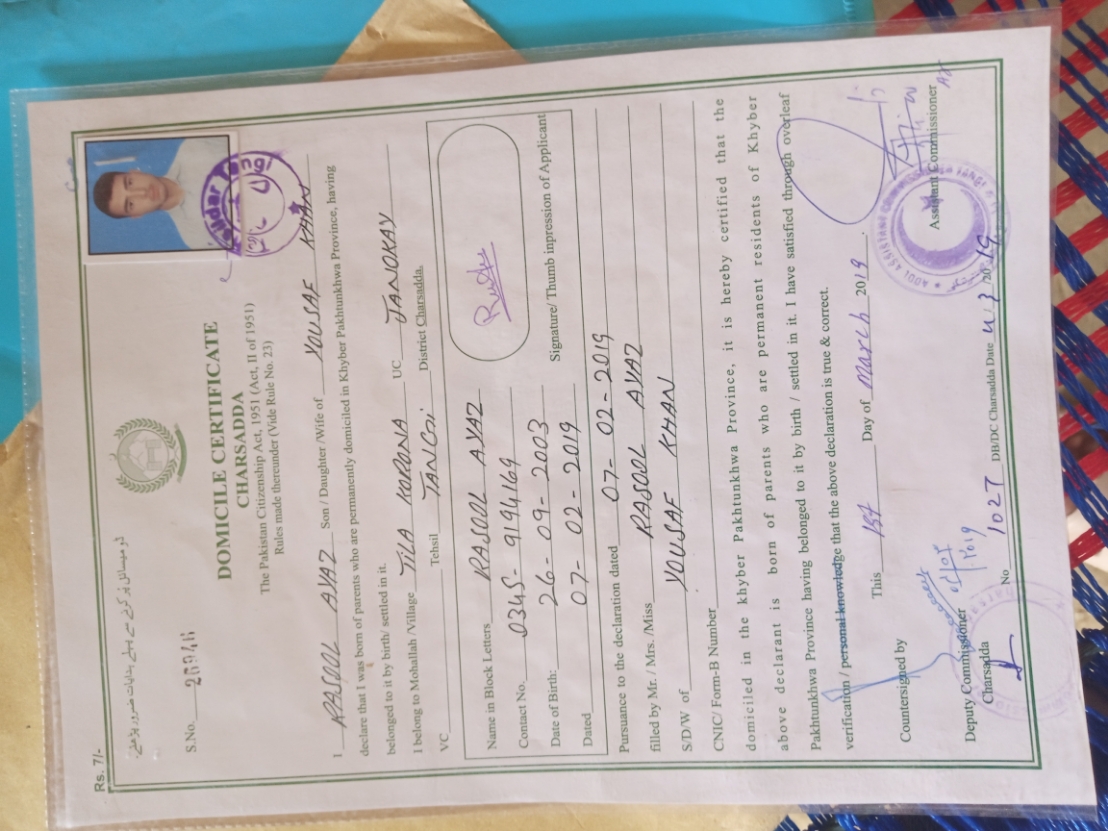 Rs. 7/-
ڈومیسائل پُر کرنے سے پہلے ہدایات ضرور پڑھیئے
S.No. 20946
DOMICILE CERTIFICATE
CHARSADDA
The Pakistan Citizenship Act, 1951 (Act, II of 1951)
Rules made thereunder (Vide Rule No. 23)
I RASOOL AYAZ Son / Daughter /Wife of YOUSAF KHAN
declare that I was born of parents who are permanently domiciled in Khyber Pakhtunkhwa Province, having
belonged to it by birth/ settled in it.
I belong to Mohallah /Village TILA KORONA UC JANOKAY
VC Tehsil TANGi District Charsadda.
Name in Block Letters RASOOL AYAZ
Contact No. 0345-9194169
Date of Birth: 26-09-2003
Signature/ Thumb inpression of Applicant
Dated 07-02-2019
Pursuance to the declaration dated 07-02-2019
filled by Mr. / Mrs. /Miss RASOOL AYAZ
S/D/W of YOUSAF KHAN
CNIC/ Form-B Number
domiciled in the khyber Pakhtunkhwa Province, it is hereby certified that the
above declarant is born of parents who are permanent residents of Khyber
Pakhtunkhwa Province having belonged to it by birth / settled in it. I have satisfied through overleaf
verification / personal knowledge that the above declaration is true & correct.
This 1st Day of March 2019.
Countersigned by
Deputy Commissioner
Charsadda
No 1027 DB/DC Charsadda Date /20 19
Assistant Commissioner